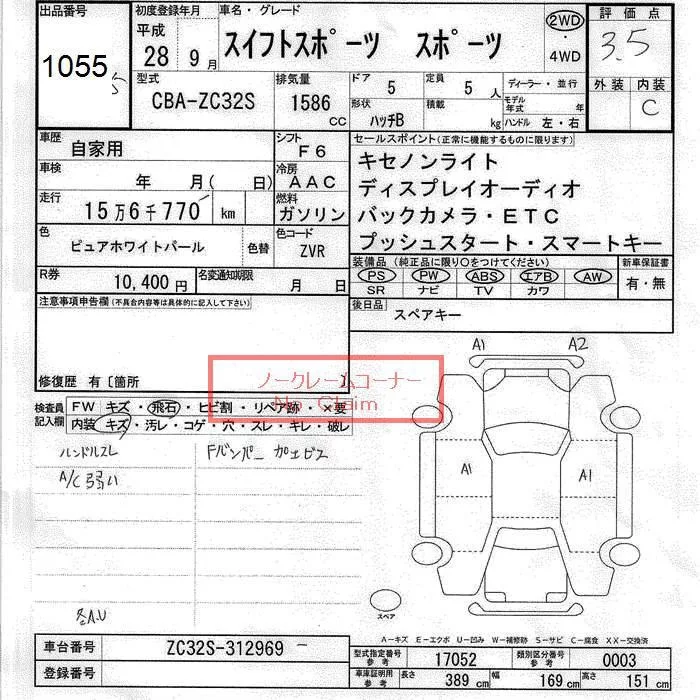 出品番号
1055
初度登録年月
平成
28年 9月
車名・グレード
スイフトスポーツ スポーツ
2WD
・
4WD
評価点
3.5
外装 内装
C
型式
CBA-ZC32S
排気量
1586
CC
ドア
5
定員
5人
ディーラー・並行
形状
ハッチB
積載
kg
モデル年式
年
ハンドル 左・右
車歴
自家用
シフト
F6
セールスポイント(正常に機能するものに限ります)
キセノンライト
ディスプレイオーディオ
バックカメラ・ETC
プッシュスタート・スマートキー
車検
年 月( 日)
冷房
AAC
走行
15万6千770 km
燃料
ガソリン
色
ピュアホワイトパール
色替
色コード
ZVR
装備品 (純正品に限り○をつけてください)
PS PW ABS エアB AW
SR ナビ TV カワ
新車保証書
有・無
R券
10,400円
名変通知期限
月 日
後日品
スペアキー
注意事項申告欄(不具合内容等は具体的に記入して下さい)
修復歴 有〔箇所
ノークレームコーナー
No Claim
検査員記入欄
FW キズ・飛石・ヒビ割・リペア跡・×要
内装 キズ・汚レ・コゲ・穴・スレ・キレ・破レ
ハンドルスレ
Fバンパー カエビス
A/C弱い
A1 A2
A1 A1
スペア
A-キズ E-エクボ U-凹み W-補修跡 S-サビ C-腐食 XX-交換済
車台番号
ZC32S-312969
登録番号
型式指定番号
参考
17052
類別区分番号
参考
0003
車庫証明用
参考
長さ 389 cm
幅 169 cm
高さ 151 cm